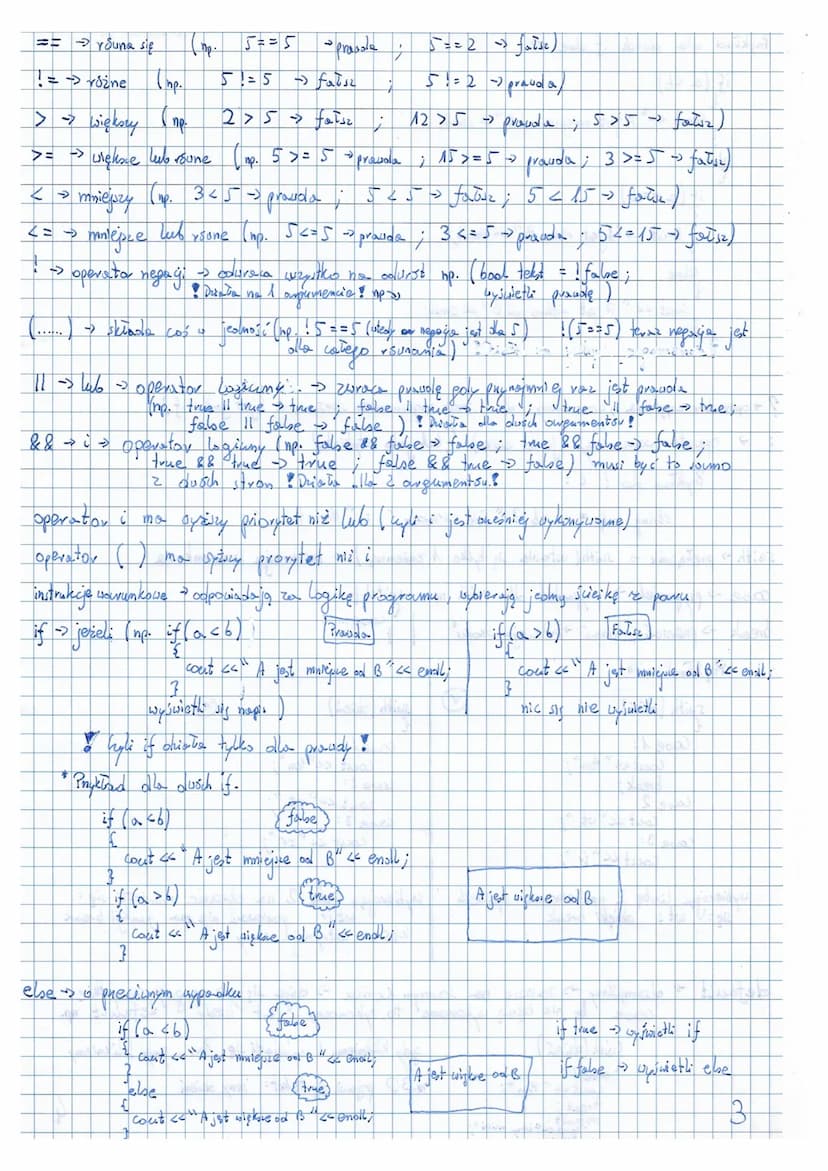 == → równa się (np. 5==5 → prawda ; 5==2 → fałsz)
!= → różne (np. 5!=5 → fałsz ; 5!=2 → prawda)
> → większy (np. 2>5 → fałsz ; 12>5 → prawda ; 5>5 → fałsz)
>= → większe lub równe (np. 5>=5 → prawda ; 15>=5 → prawda ; 3>=5 → fałsz)
< → mniejszy (np. 3<5 → prawda ; 5<5 → fałsz ; 5<15 → fałsz)
<= → mniejsze lub równe (np. 5<=5 → prawda ; 3<=5 → prawda ; 5<=15 → fałsz)
! → operator negacji → odwraca wszystko na odwrót np. (bool tekst = !false ;
! Działa na 1 argumencie! np → wyświetli prawdę )
(......) → składa coś w jedność (np. !5==5 (wtedy negacja jest dla 5) !(5==5) teraz negacja jest
dla całego równania)
|| → lub → operator logiczny → zwraca prawdę gdy przynajmniej raz jest prawda
(np. true || true → true ; false || true → true ; true || false → true ;
false || false → false ) ! Działa dla dwóch argumentów!
&& → i → operator logiczny (np. false && false → false ; true && false → false ;
true && true → true ; false && true → false) musi być to samo
z dwóch stron ! Działa dla 2 argumentów!
operator i ma wyższy priorytet niż lub (czyli i jest wcześniej wykonywane)
operator ( ) ma wyższy prorytet niż i
instrukcje warunkowe → odpowiadają za logikę programu, wybierają jedną ścieżkę z paru
if → jeżeli (np. if(a<b) Prawda if(a>b) Fałsz
{ {
cout << " A jest mniejsze od B " << endl; cout << " A jest mniejsze od B " << endl;
} }
wyświetli się napis ) nic się nie wyświetli
! Czyli if działa tylko dla prawdy !
* Przykład dla dwóch if.
if (a<b) false
{
cout << " A jest mniejsze od B" << endl;
}
if (a>b) true A jest większe od B
{
cout << " A jest większe od B " << endl;
}
else → w przeciwnym wypadku
if (a<b) false if true → wyświetli if
{ cout << "A jest mniejsze od B " << endl;
} A jest większe od B if false → wyświetli else
else true
{
cout << " A jest większe od B " << endl;
}
3